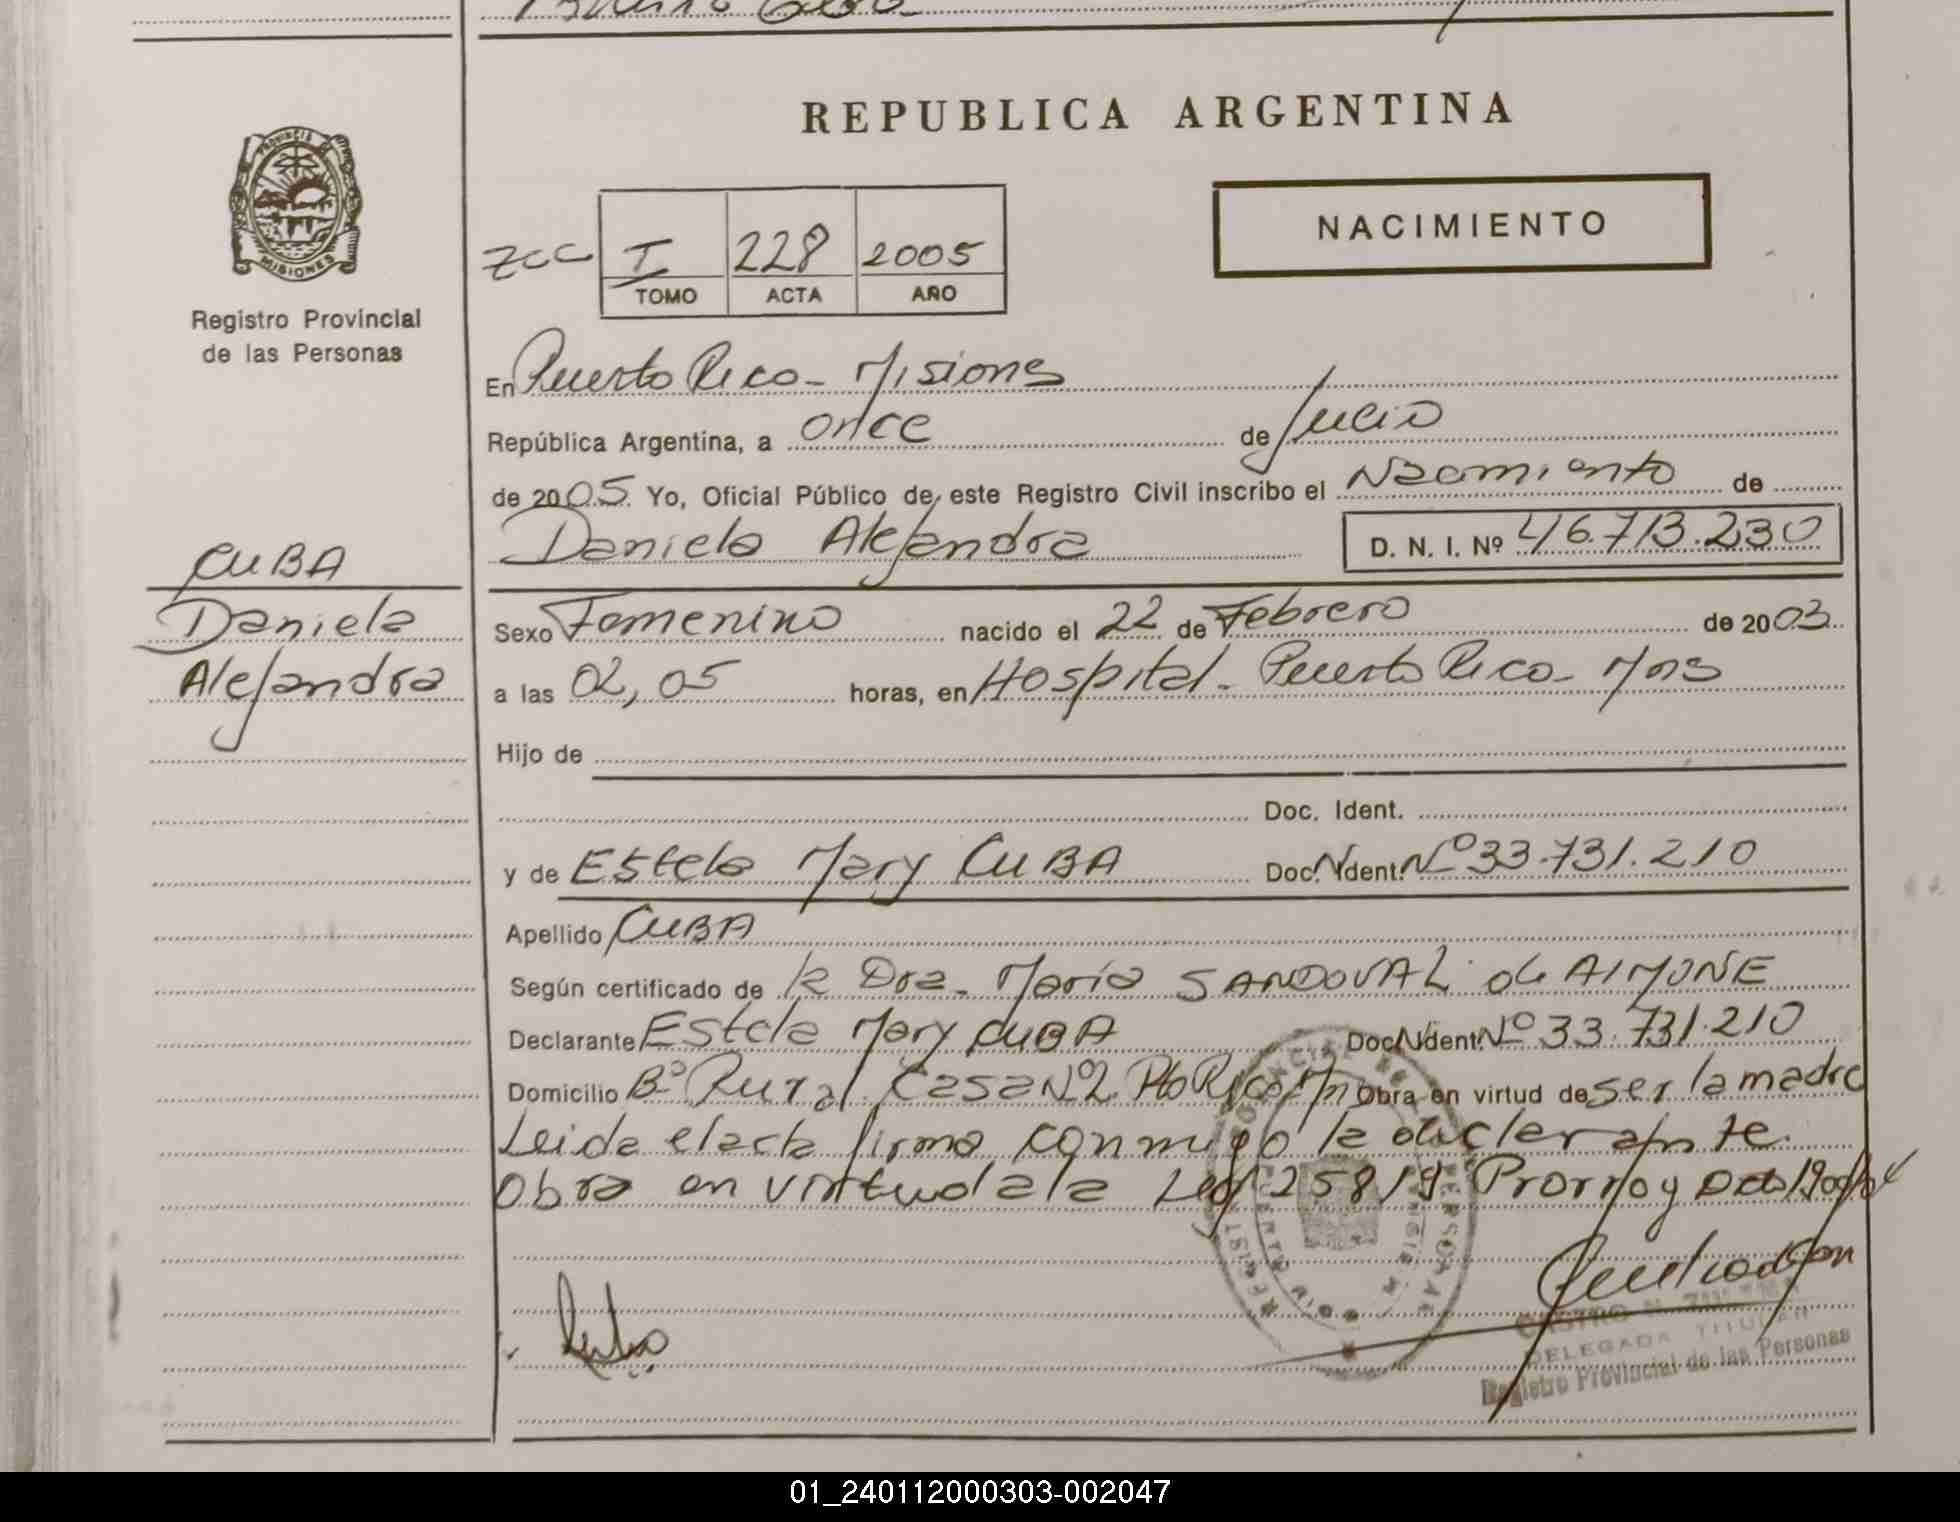 REPUBLICA ARGENTINA
PROVINCIA DE
MISIONES
Registro Provincial
de las Personas
NACIMIENTO
ZCC I 228 2005
TOMO ACTA AÑO
En Puerto Rico - Misiones
República Argentina, a once de Julio
de 2005. Yo, Oficial Público de este Registro Civil inscribo el Nacimiento de
Daniela Alejandra D. N. I. Nº 46.713.230
CUBA
Daniela
Alejandra
Sexo Femenino nacido el 22 de Febrero de 2003
a las 02,05 horas, en Hospital - Puerto Rico - Mns
Hijo de
Doc. Ident.
y de Estela Mary CUBA Doc. Ident. Nº 33.731.210
Apellido CUBA
Según certificado de la Dra. María SANDOVAL de AIMONE
Declarante Estela Mary CUBA Doc. Ident. Nº 33.731.210
Domicilio Bº Rural Casa Nº 2 Pto Rico Mn Obra en virtud de ser la madre
Leida el acta firma conmigo la declarante
Obra en virtud a la Ley 25819 Prorrog Dcto
DELEGADA TITULAR
Registro Provincial de las Personas
01_240112000303-002047